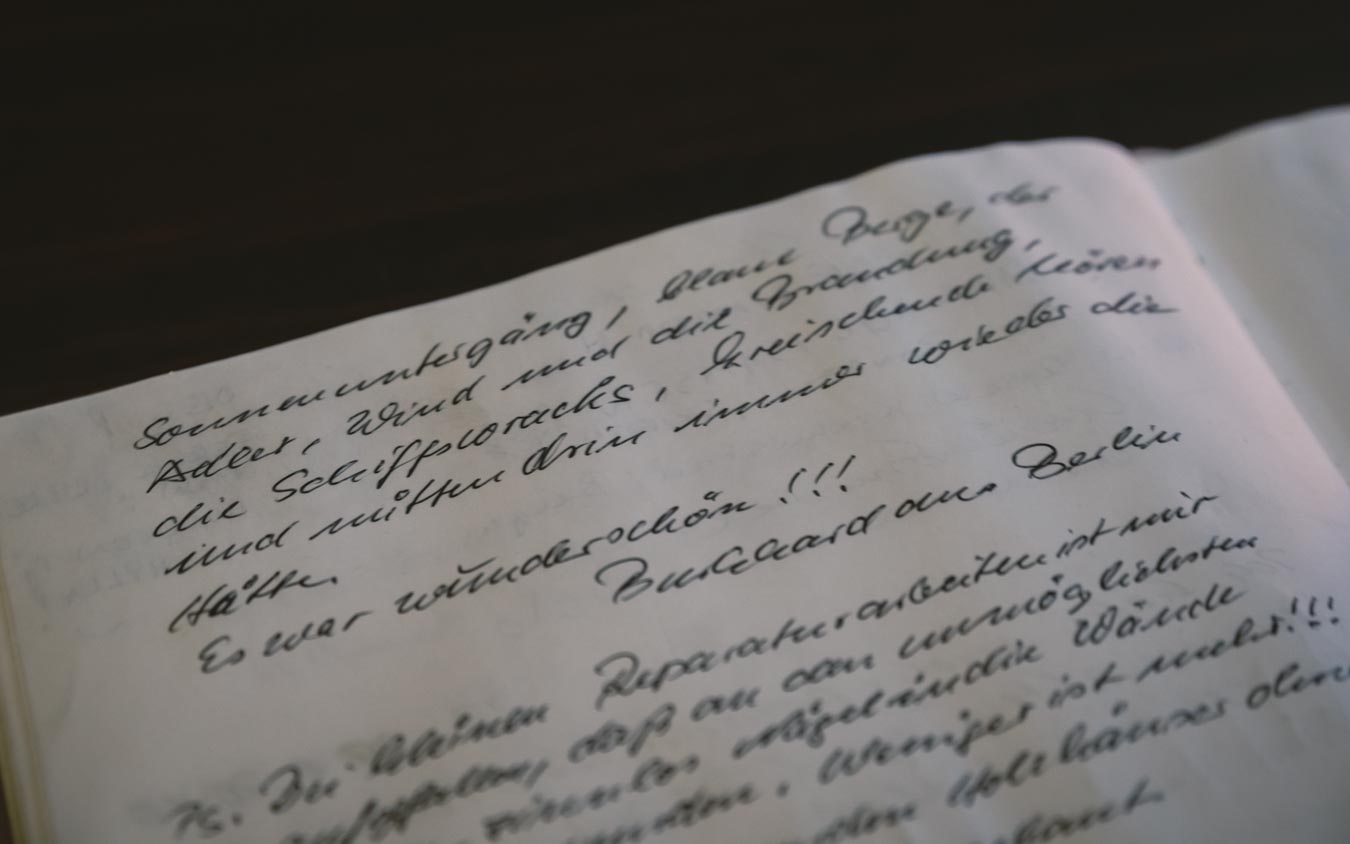 Sonnenuntergäng, blaue Berge, der
Adler, Wind und die Brandung,
die Schiffswracks, kreischende Möven
und mitten drin immer wieder die
Hütte.
Es war wunderschön!!!
Burkhard aus Berlin
Ps. Bei kleinen Reparaturarbeiten ist mir
aufgefallen, daß an den unmöglichsten
sinnlos Nägel in die Wände
wurden. Weniger ist mehr!!!
den Holzhäuser ohne